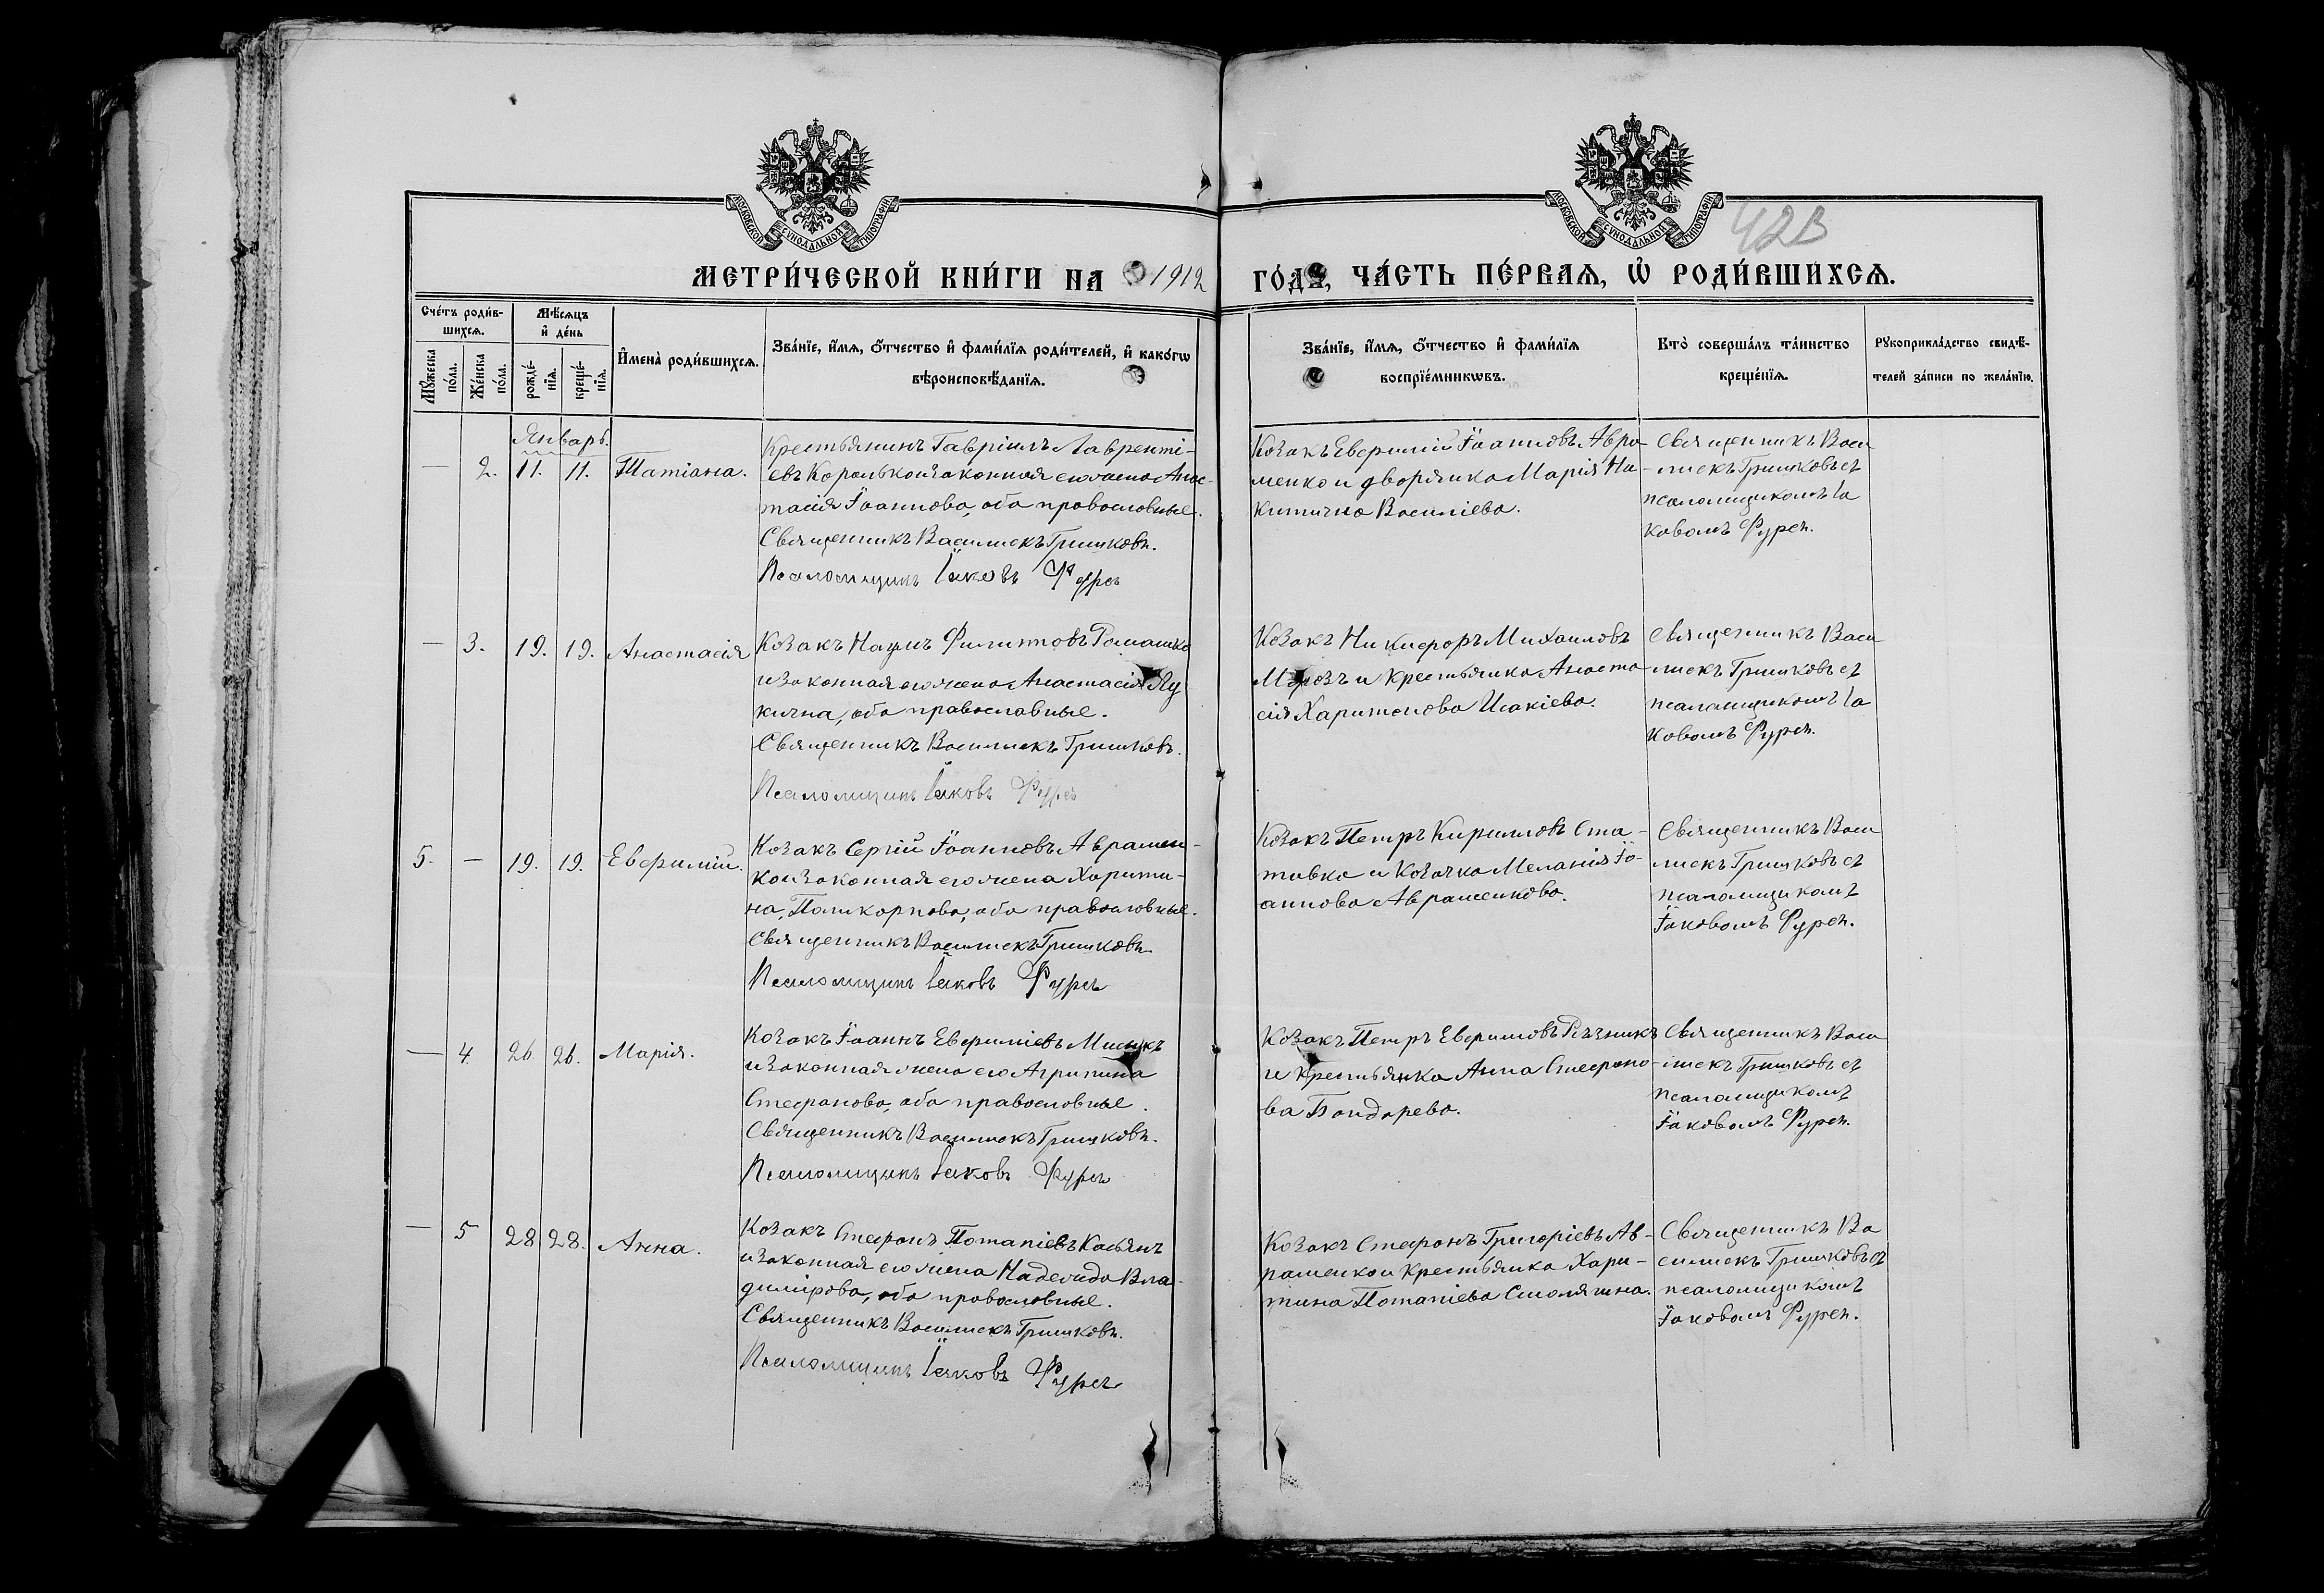 МОСКОВСКОЙ СѴНОДАЛЬНОЙ ТИПОГРАФІИ
МОСКОВСКОЙ СѴНОДАЛЬНОЙ ТИПОГРАФІИ
428
МЕТРИ́ЧЕСКОЙ КНИ́ГИ НА 1912 ГО́ДЪ, ЧА́СТЬ ПЕ́РВАѦ, Ѡ҆ РОДИ́ВШИХСѦ.
Сче́тъ роди́в-
шихсѧ.
Мꙋ́жеска по́ла.
Же́нска по́ла.
Мѣ́сѧцъ
и҆ де́нь
рожде́-
нїѧ.
креще́-
нїѧ.
И҆мена̀ роди́вшихсѧ.
Зва́нїе, и҆́мѧ, ѻ҆́тчество и҆ фами́лїѧ роди́телей, и҆ како́гѡ
вѣроисповѣ́данїѧ.
Зва́нїе, и҆́мѧ, ѻ҆́тчество и҆ фами́лїѧ
воспрїе́мникѡвъ.
Кто̀ соверша́лъ та́инство
креще́нїѧ.
Рꙋкоприкла́дство свидѣ́-
телей за́писи по жела́нїю.
Январь.
— 2. 11. 11. Татіана.
Крестьянинъ Гавріилъ Лавренті-
евъ Королько и законная его жена Анас-
тасія Іоаннова, оба православные.
Священникъ Василискъ Гришковъ.
Псаломщикъ Іаковъ Фурсъ
Козакъ Евфимій Іоанновъ Авра-
менко и дворянка Марія Ни-
китична Василіева.
Священникъ Васи-
лискъ Гришковъ съ
псаломщикомъ Іа
ковомъ Фурсъ.
— 3. 19. 19. Анастасія
Козакъ Наумъ Филипповъ Ромашко
и законная его жена Анастасія Лу
кична, оба православные.
Священникъ Василискъ Гришковъ.
Псаломщикъ Іаковъ Фурсъ
Козакъ Никифоръ Михаиловъ
Морозъ и крестьянка Анаста
сія Харитонова Исакіева.
Священникъ Васи
лискъ Гришковъ съ
псаломщикомъ Іа
ковомъ Фурсъ.
5. — 19. 19. Евфимій.
Козакъ Сергій Іоанновъ Аврамен-
ко и законная его жена Харити-
на Поликарпова, оба православные.
Священникъ Василискъ Гришковъ.
Псаломщикъ Іаковъ Фурсъ
Козакъ Петръ Кирилловъ Ста-
товко и козачка Меланія Іо-
аннова Авраменкова.
Священникъ Васи
лискъ Гришковъ съ
псаломщикомъ
Іаковомъ Фурсъ.
— 4. 26. 26. Марія.
Козакъ Іоаннъ Евфиміевъ
и законная жена его Агрипина
Стефанова, оба православные.
Священникъ Василискъ Гришковъ.
Псаломщикъ Іаковъ Фурсъ
Козакъ Петръ Евфимовъ Рѣзникъ
и крестьянка Анна Стефано-
ва Бондарева.
Священникъ Васи
лискъ Гришковъ съ
псаломщикомъ
Іаковомъ Фурсъ.
— 5 28 28. Анна.
Козакъ Стефанъ Потапіевъ Касьянъ
и законная его жена Надежда Вла-
димірова, оба православные.
Священникъ Василискъ Гришковъ.
Псаломщикъ Іаковъ Фурсъ
Козакъ Стефанъ Григоріевъ Ав-
раменко и крестьянка Хари-
тина Потапіева Смолягина.
Священникъ Ва
силискъ Гришковъ съ
псаломщикомъ
Іаковомъ Фурсъ.